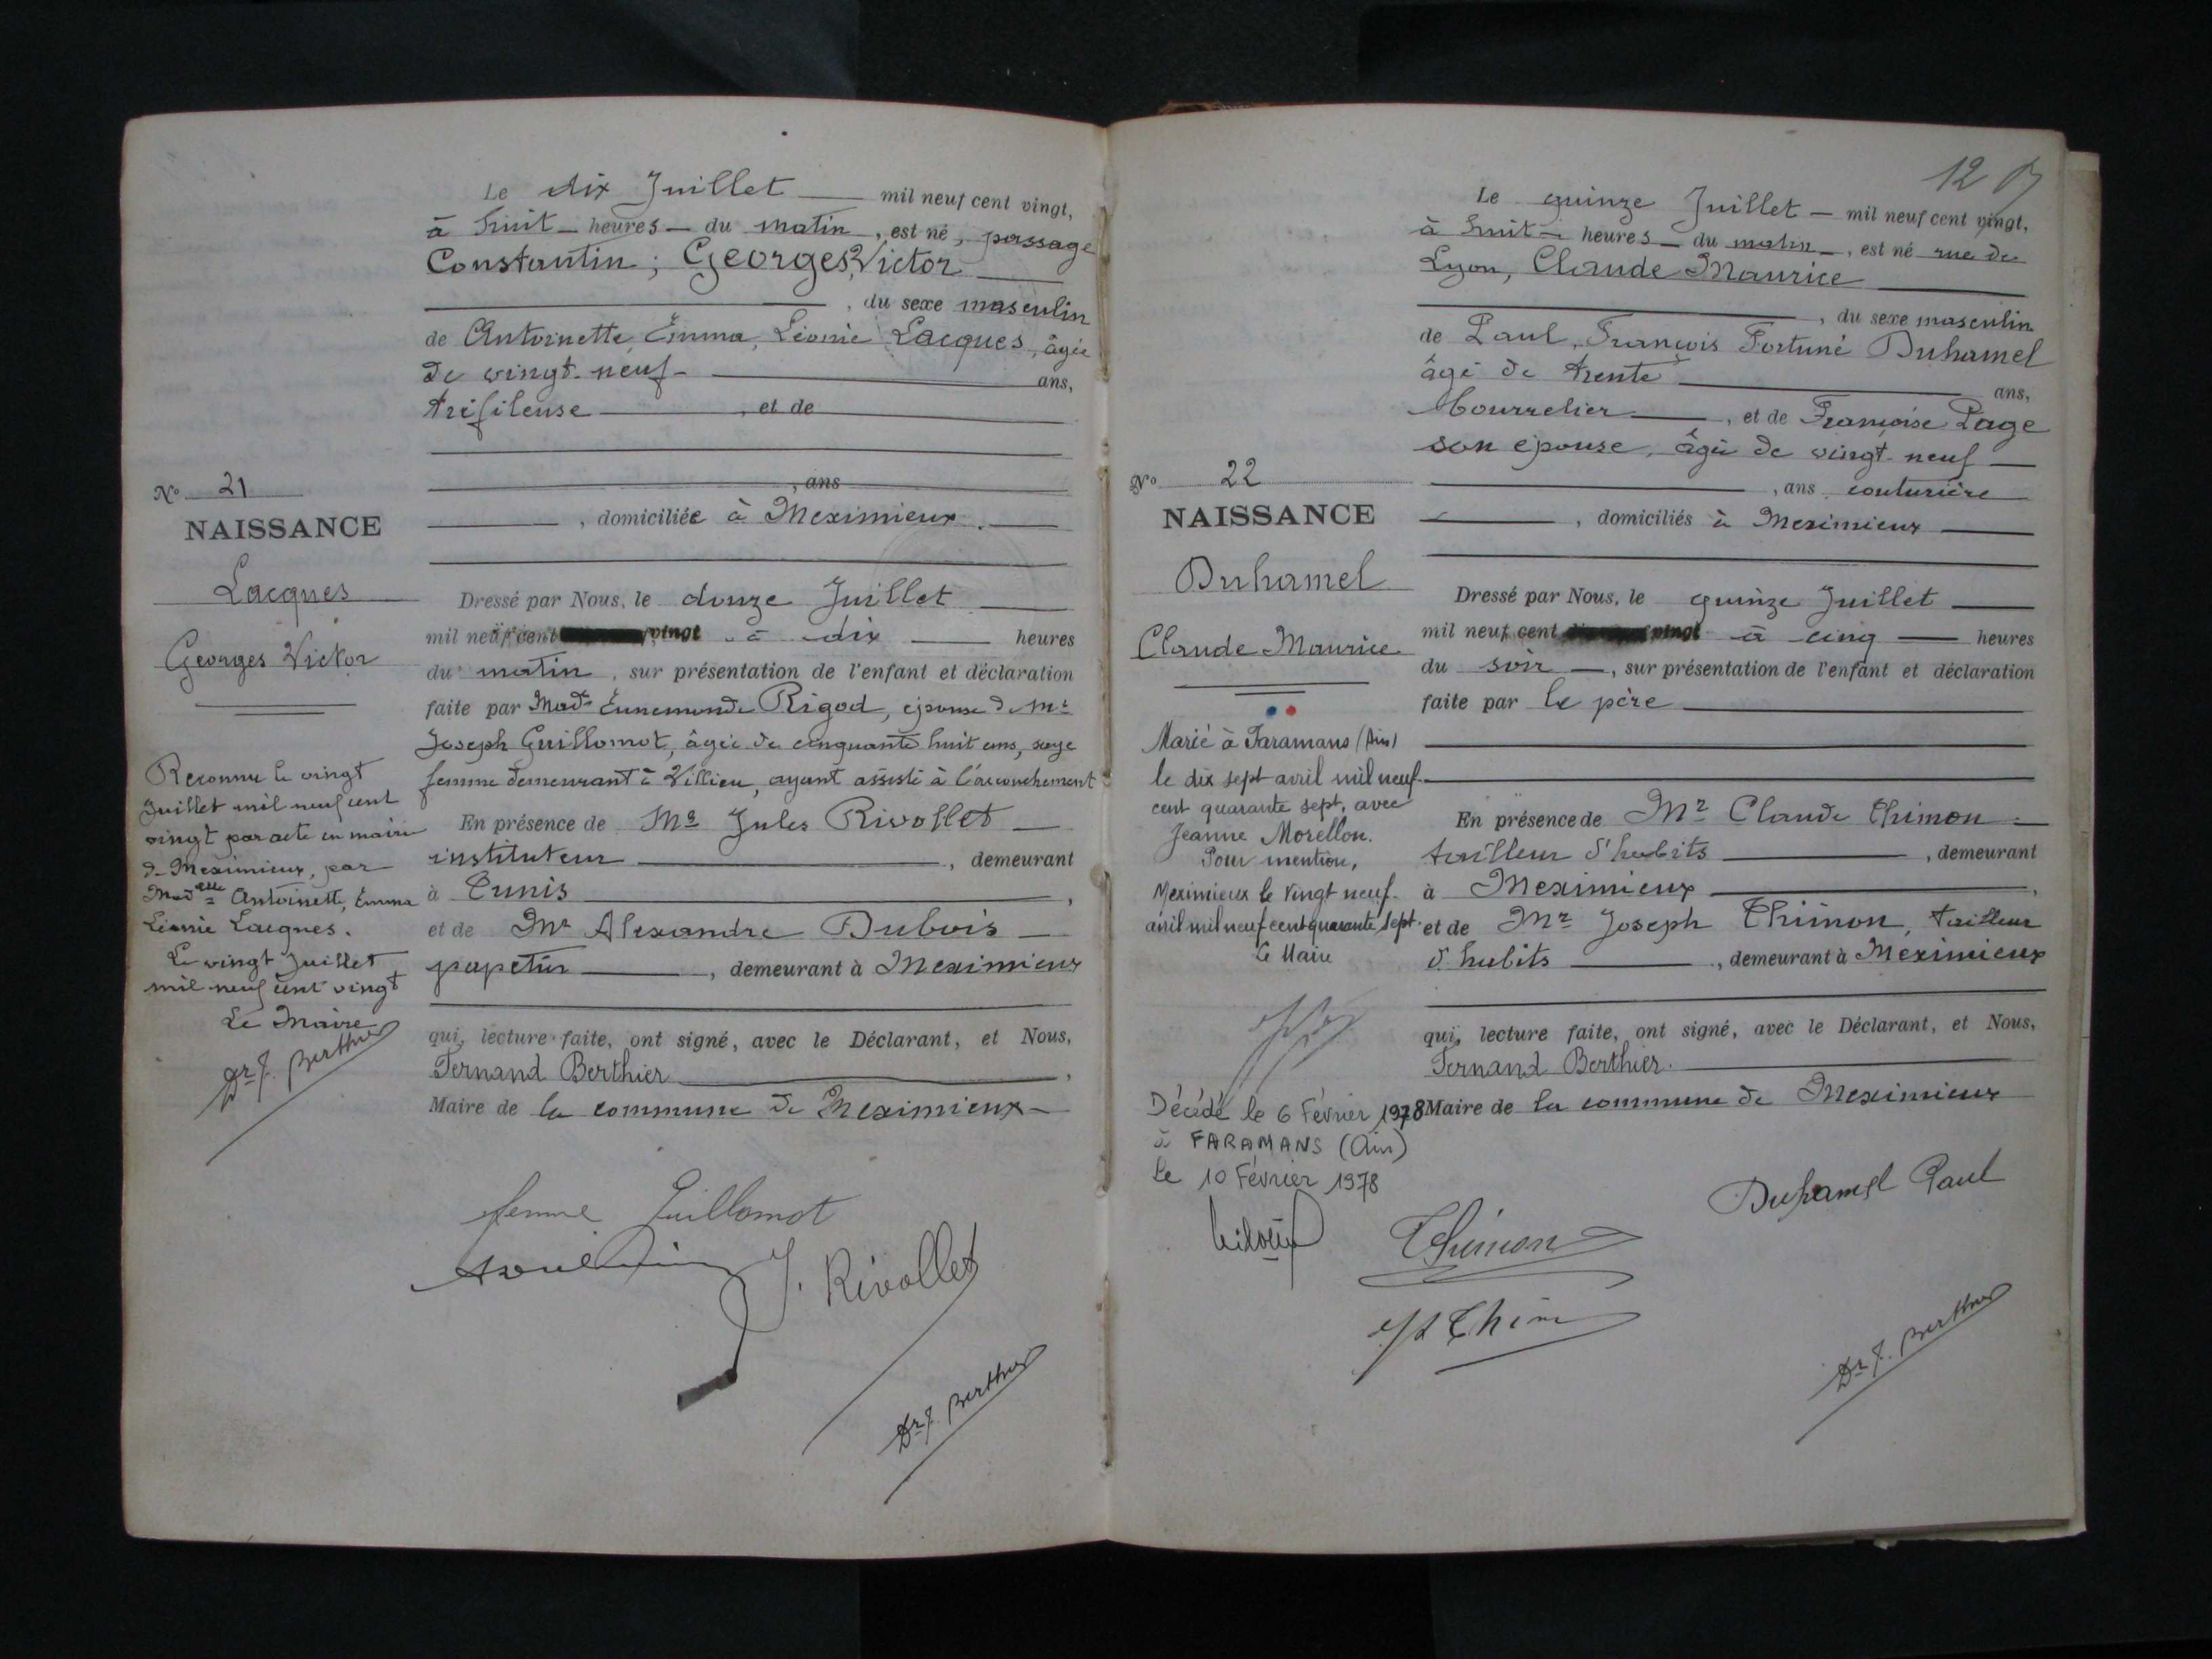 Le dix Juillet mil neuf cent vingt,
à huit heures du matin, est né, passage
Constantin, Georges, Victor
, du sexe masculin
de Antoinette, Emma, Léonie Lacques, âgée
de vingt-neuf ans,
tréfileuse, et de
, ans
, domiciliée à Meximieux.
Dressé par Nous, le douze Juillet
mil neuf cent vingt à dix heures
du matin, sur présentation de l'enfant et déclaration
faite par Made Ennemonde Rigod, épouse de Mr
Joseph Guillomot, âgée de cinquante huit ans, sage
femme demeurant à Villieu, ayant assisté à l'accouchement
En présence de Mr Jules Rivollet
instituteur, demeurant
à Tunis,
et de Mr Alexandre Dubois
papetier, demeurant à Meximieux
qui, lecture faite, ont signé, avec le Déclarant, et Nous,
Fernand Berthier,
Maire de la commune de Meximieux
femme Guillomot
J. Rivollet
Dr F. Berthier
No 21
NAISSANCE
Lacques
Georges Victor
Reconnu le vingt
Juillet mil neuf cent
vingt par acte en mairie
de Meximieux, par
Madelle Antoinette, Emma
Léonie Lacques.
Le vingt Juillet
mil neuf cent vingt
Le Maire
Dr F. Berthier
12
Le quinze Juillet mil neuf cent vingt,
à huit heures du matin, est né rue de
Lyon, Claude Maurice
, du sexe masculin
de Paul, François Fortuné Duhamel
âgé de trente ans,
bourrelier, et de Françoise Page
son épouse, âgée de vingt-neuf
, ans couturière
, domiciliés à Meximieux
Dressé par Nous, le quinze Juillet
mil neuf cent vingt à cinq heures
du soir, sur présentation de l'enfant et déclaration
faite par le père
En présence de Mr Claude Thimon
tailleur d'habits, demeurant
à Meximieux,
et de Mr Joseph Thimon, tailleur
d'habits, demeurant à Meximieux
qui, lecture faite, ont signé, avec le Déclarant, et Nous,
Fernand Berthier.
Maire de la commune de Meximieux
Duhamel Paul
Thimon
Dr F. Berthier
No 22
NAISSANCE
Duhamel
Claude Maurice
Marié à Faramans (Ain)
le dix sept avril mil neuf
cent quarante sept, avec
Jeanne Morellon.
Pour mention,
Meximieux le vingt neuf
avril mil neuf cent quarante sept.
Le Maire
Décédé le 6 Février 1978
à FARAMANS (Ain)
Le 10 Février 1978